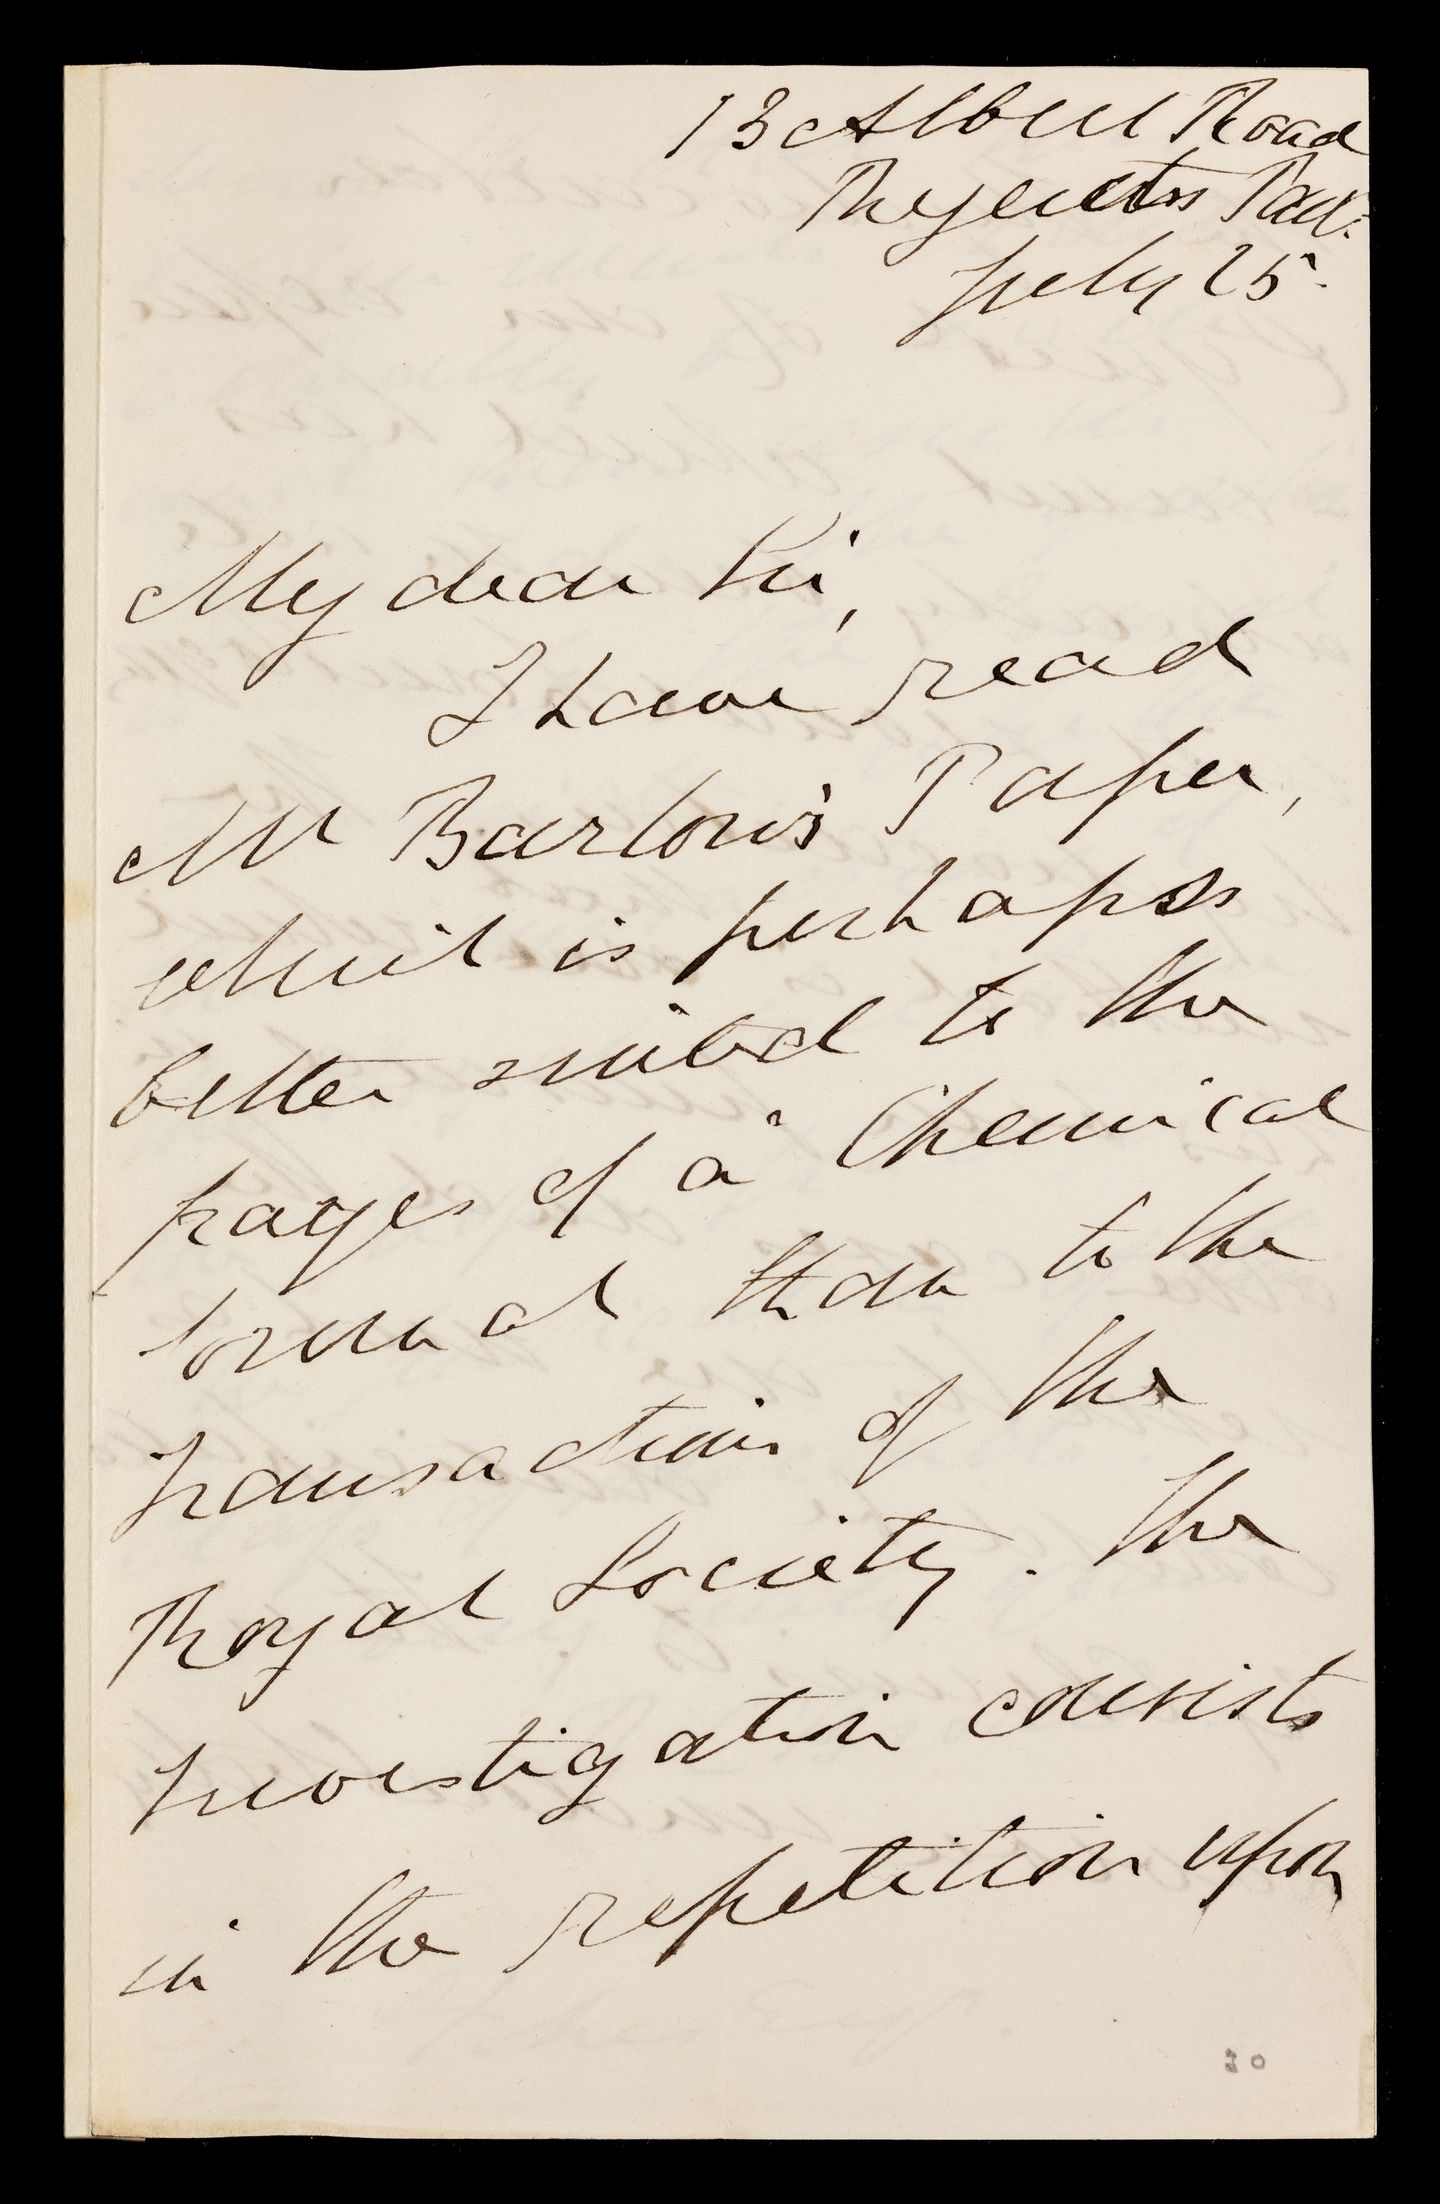 13 Albert Road
Regents Park
July 25.
My dear Sir,
I have read
Mr Barlow's Paper,
which is perhaps
better suited to the
pages of a Chemical
Journal than to the
Transactions of the
Royal Society. The
Investigation consists
in the repetition upon
20